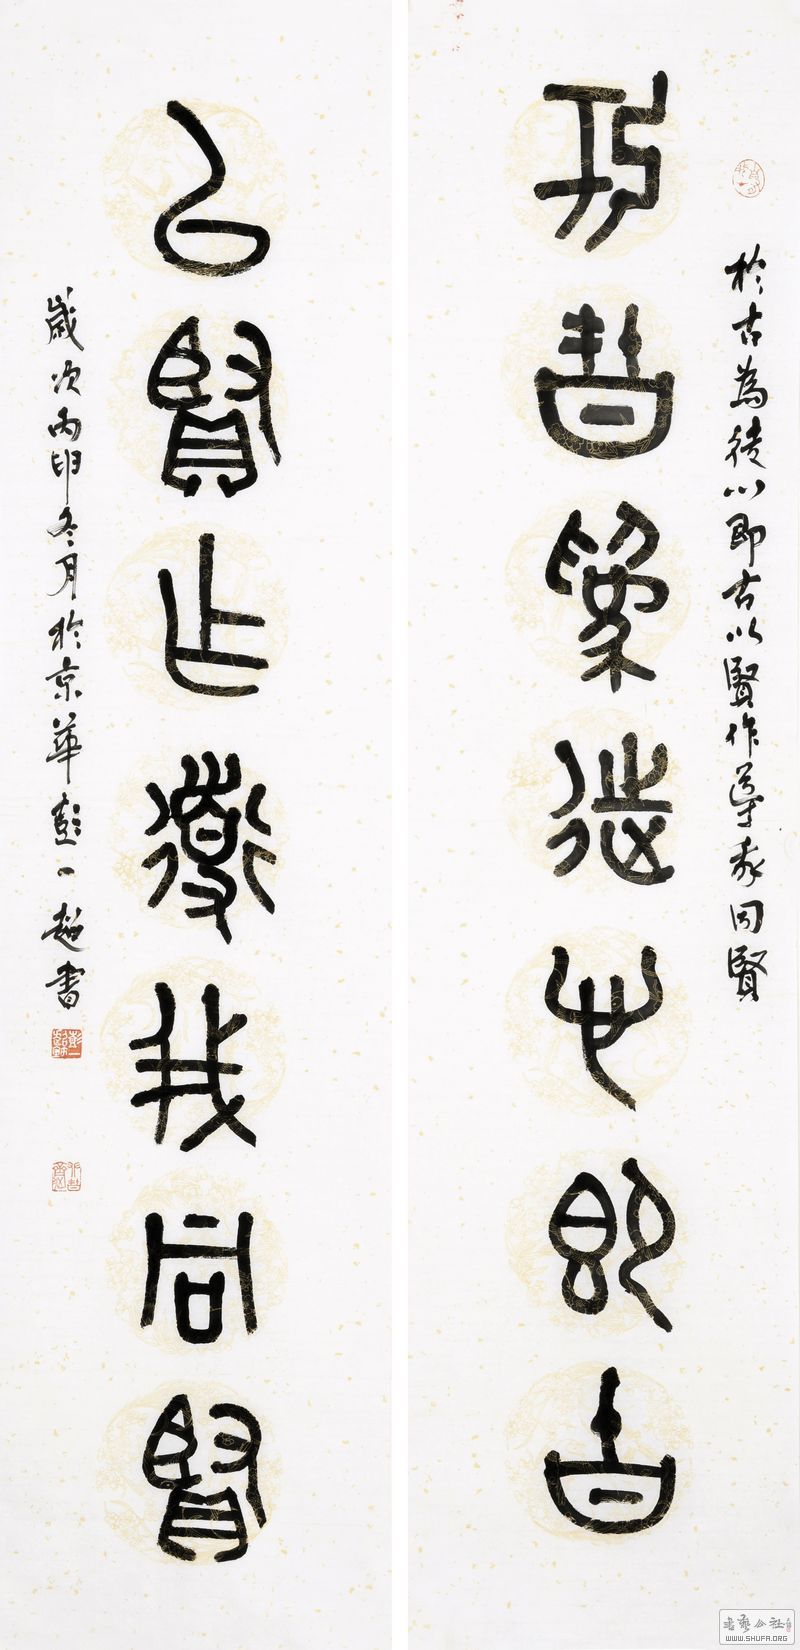 於古為徒心即古以賢作導我同賢
於古為徒心即古
以賢作導我同賢
歲次丙申冬月於京華彭一超書
書藝公社
WWW.SHUFA.ORG